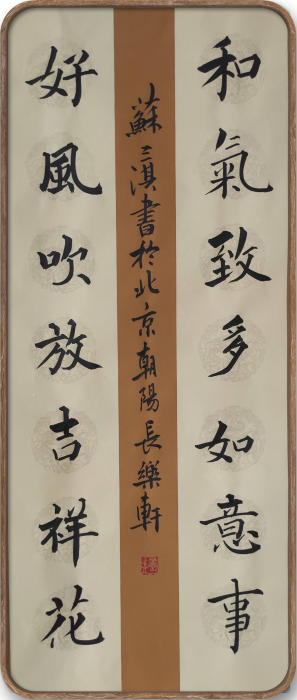 和氣致多如意事
蘇三淇書於北京朝陽長樂軒
好風吹放吉祥花